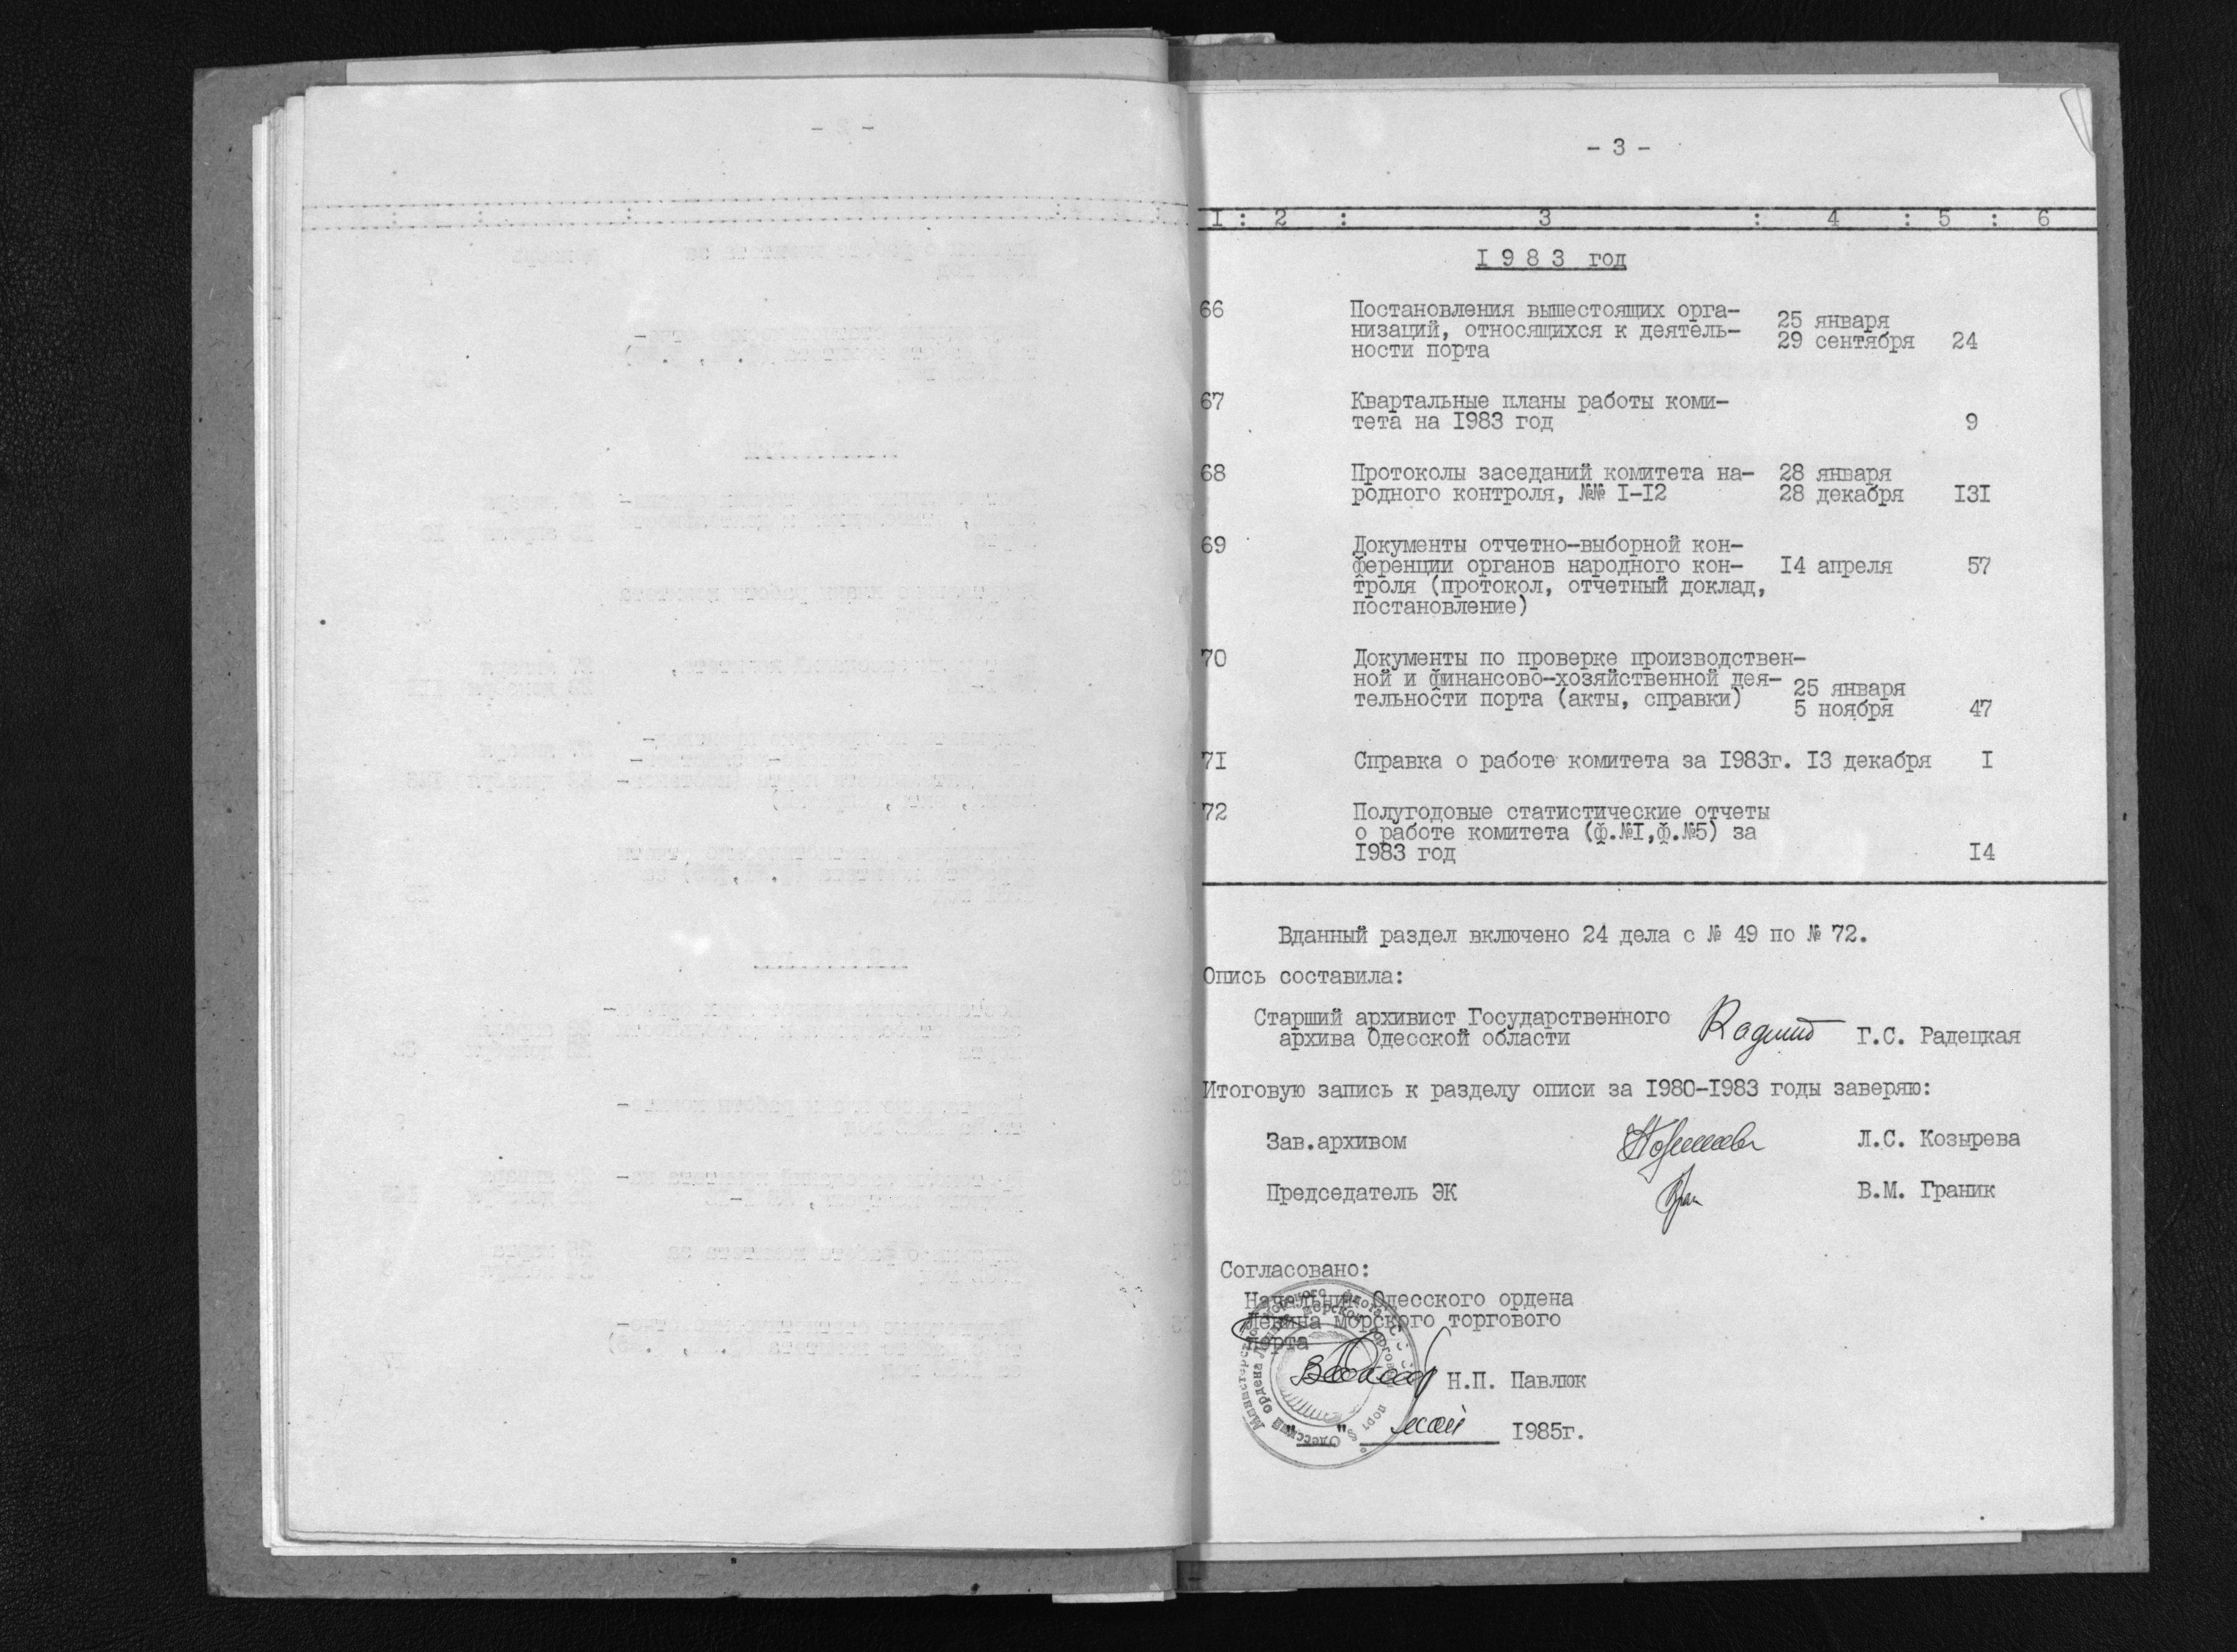 - 3 -
1 : 2 : 3 : 4 : 5 : 6
1 9 8 3 год
66 Постановления вышестоящих орга-
низаций, относящихся к деятель- 25 января
ности порта 29 сентября 24
67 Квартальные планы работы коми-
тета на 1983 год 9
68 Протоколы заседаний комитета на- 28 января
родного контроля, №№ I-I2 28 декабря I3I
69 Документы отчетно-выборной кон-
ференции органов народного кон- I4 апреля 57
троля (протокол, отчетный доклад,
постановление)
70 Документы по проверке производствен-
ной и финансово-хозяйственной дея- 25 января
тельности порта (акты, справки) 5 ноября 47
7I Справка о работе комитета за I983г. I3 декабря I
72 Полугодовые статистические отчеты
о работе комитета (ф.№I,ф.№5) за
I983 год I4
Вданный раздел включено 24 дела с № 49 по № 72.
Опись составила:
Старший архивист Государственного
архива Одесской области Г.С. Радецкая
Итоговую запись к разделу описи за I980-I983 годы заверяю:
Зав.архивом Л.С. Козырева
Председатель ЭК В.М. Граник
Согласовано:
Начальник Одесского ордена
Ленина морского торгового
порта
Н.П. Павлюк
" " мая I985г.